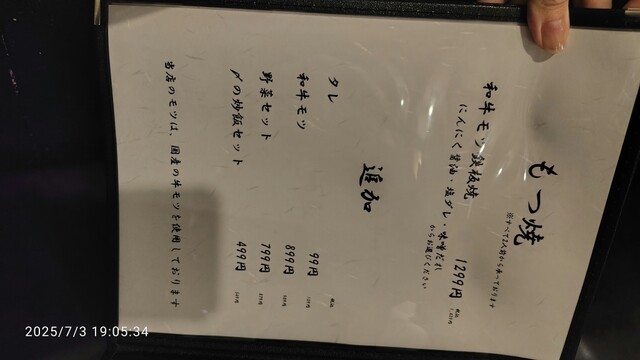 もつ焼
※すべて2人前から承っております
和牛モツ鉄板焼 1299円
にんにく醤油・塩ダレ・味噌だれ
からお選びください
追加
タレ 99円
和牛モツ 899円
野菜セット 799円
〆の炒飯セット 499円
当店のモツは、国産の牛モツを使用しております
2025/7/3 19:05:34